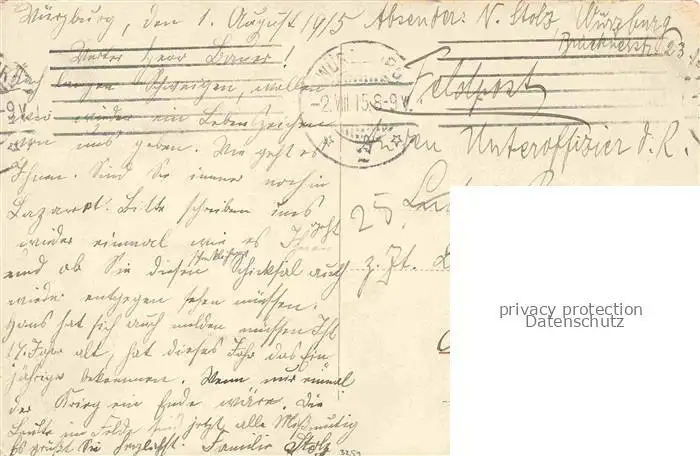 Würzburg, den 1. August 1915
Werter Herr Bauer!
Nach langen Schweigen, wollen
wir wieder ein Lebenszeichen
von uns geben. Wie geht es
Ihnen. Sind Sie immer noch in
Lazarett. Bitte schreiben uns
wieder einmal wie es Ihnen geht
und ob Sie diesen Schicksal auch
wieder entgegen sehen müssen.
Hans hat sich auch melden müssen Ist
17. Jahr alt, hat dieses Jahr das Ein
jährige bekommen. Wenn nur einmal
der Krieg ein Ende wäre. Die
Leute im Felde sind jetzt alle
Es grüßt Sie herzlichst. Familie Stolz
Absender: N. Stolz, Würzburg
23
Feldpost
-2.VIII.15.8-9V.
An den Unteroffizier d. R.
25
z. Zt.
privacy protection
Datenschutz